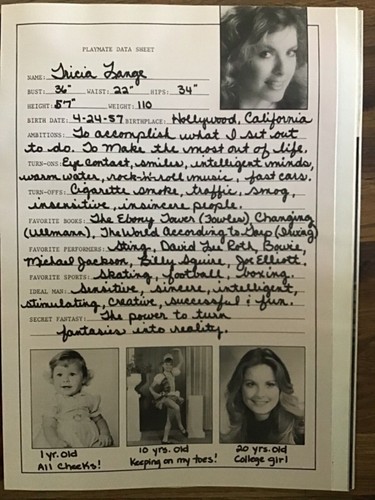 PLAYMATE DATA SHEET
NAME: Tricia Lange
BUST: 36" WAIST: 22" HIPS: 34"
HEIGHT: 5'7" WEIGHT: 110
BIRTH DATE: 4-24-57 BIRTHPLACE: Hollywood, California
AMBITIONS: To accomplish what I set out
to do. To make the most out of life.
TURN-ONS: Eye contact, smiles, intelligent minds,
warm water, rock-n-roll music, fast cars.
TURN-OFFS: Cigarette smoke, traffic, smog,
insensitive, insincere people.
FAVORITE BOOKS: The Ebony Tower (Fowles), Changing
(Ullmann), The World According to Garp (Irving)
FAVORITE PERFORMERS: Sting, David Lee Roth, Bowie,
Michael Jackson, Billy Squire, Joe Elliott.
FAVORITE SPORTS: Skating, football, boxing.
IDEAL MAN: Sensitive, sincere, intelligent,
stimulating, creative, successful & fun.
SECRET FANTASY: The power to turn
fantasies into reality.
1 yr. old
All Cheeks!
10 yrs. old
Keeping on my toes!
20 yrs. old
College girl